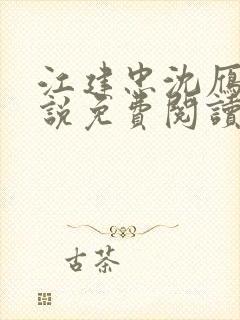 江建忠沈雁
説免費閱讀
古茶